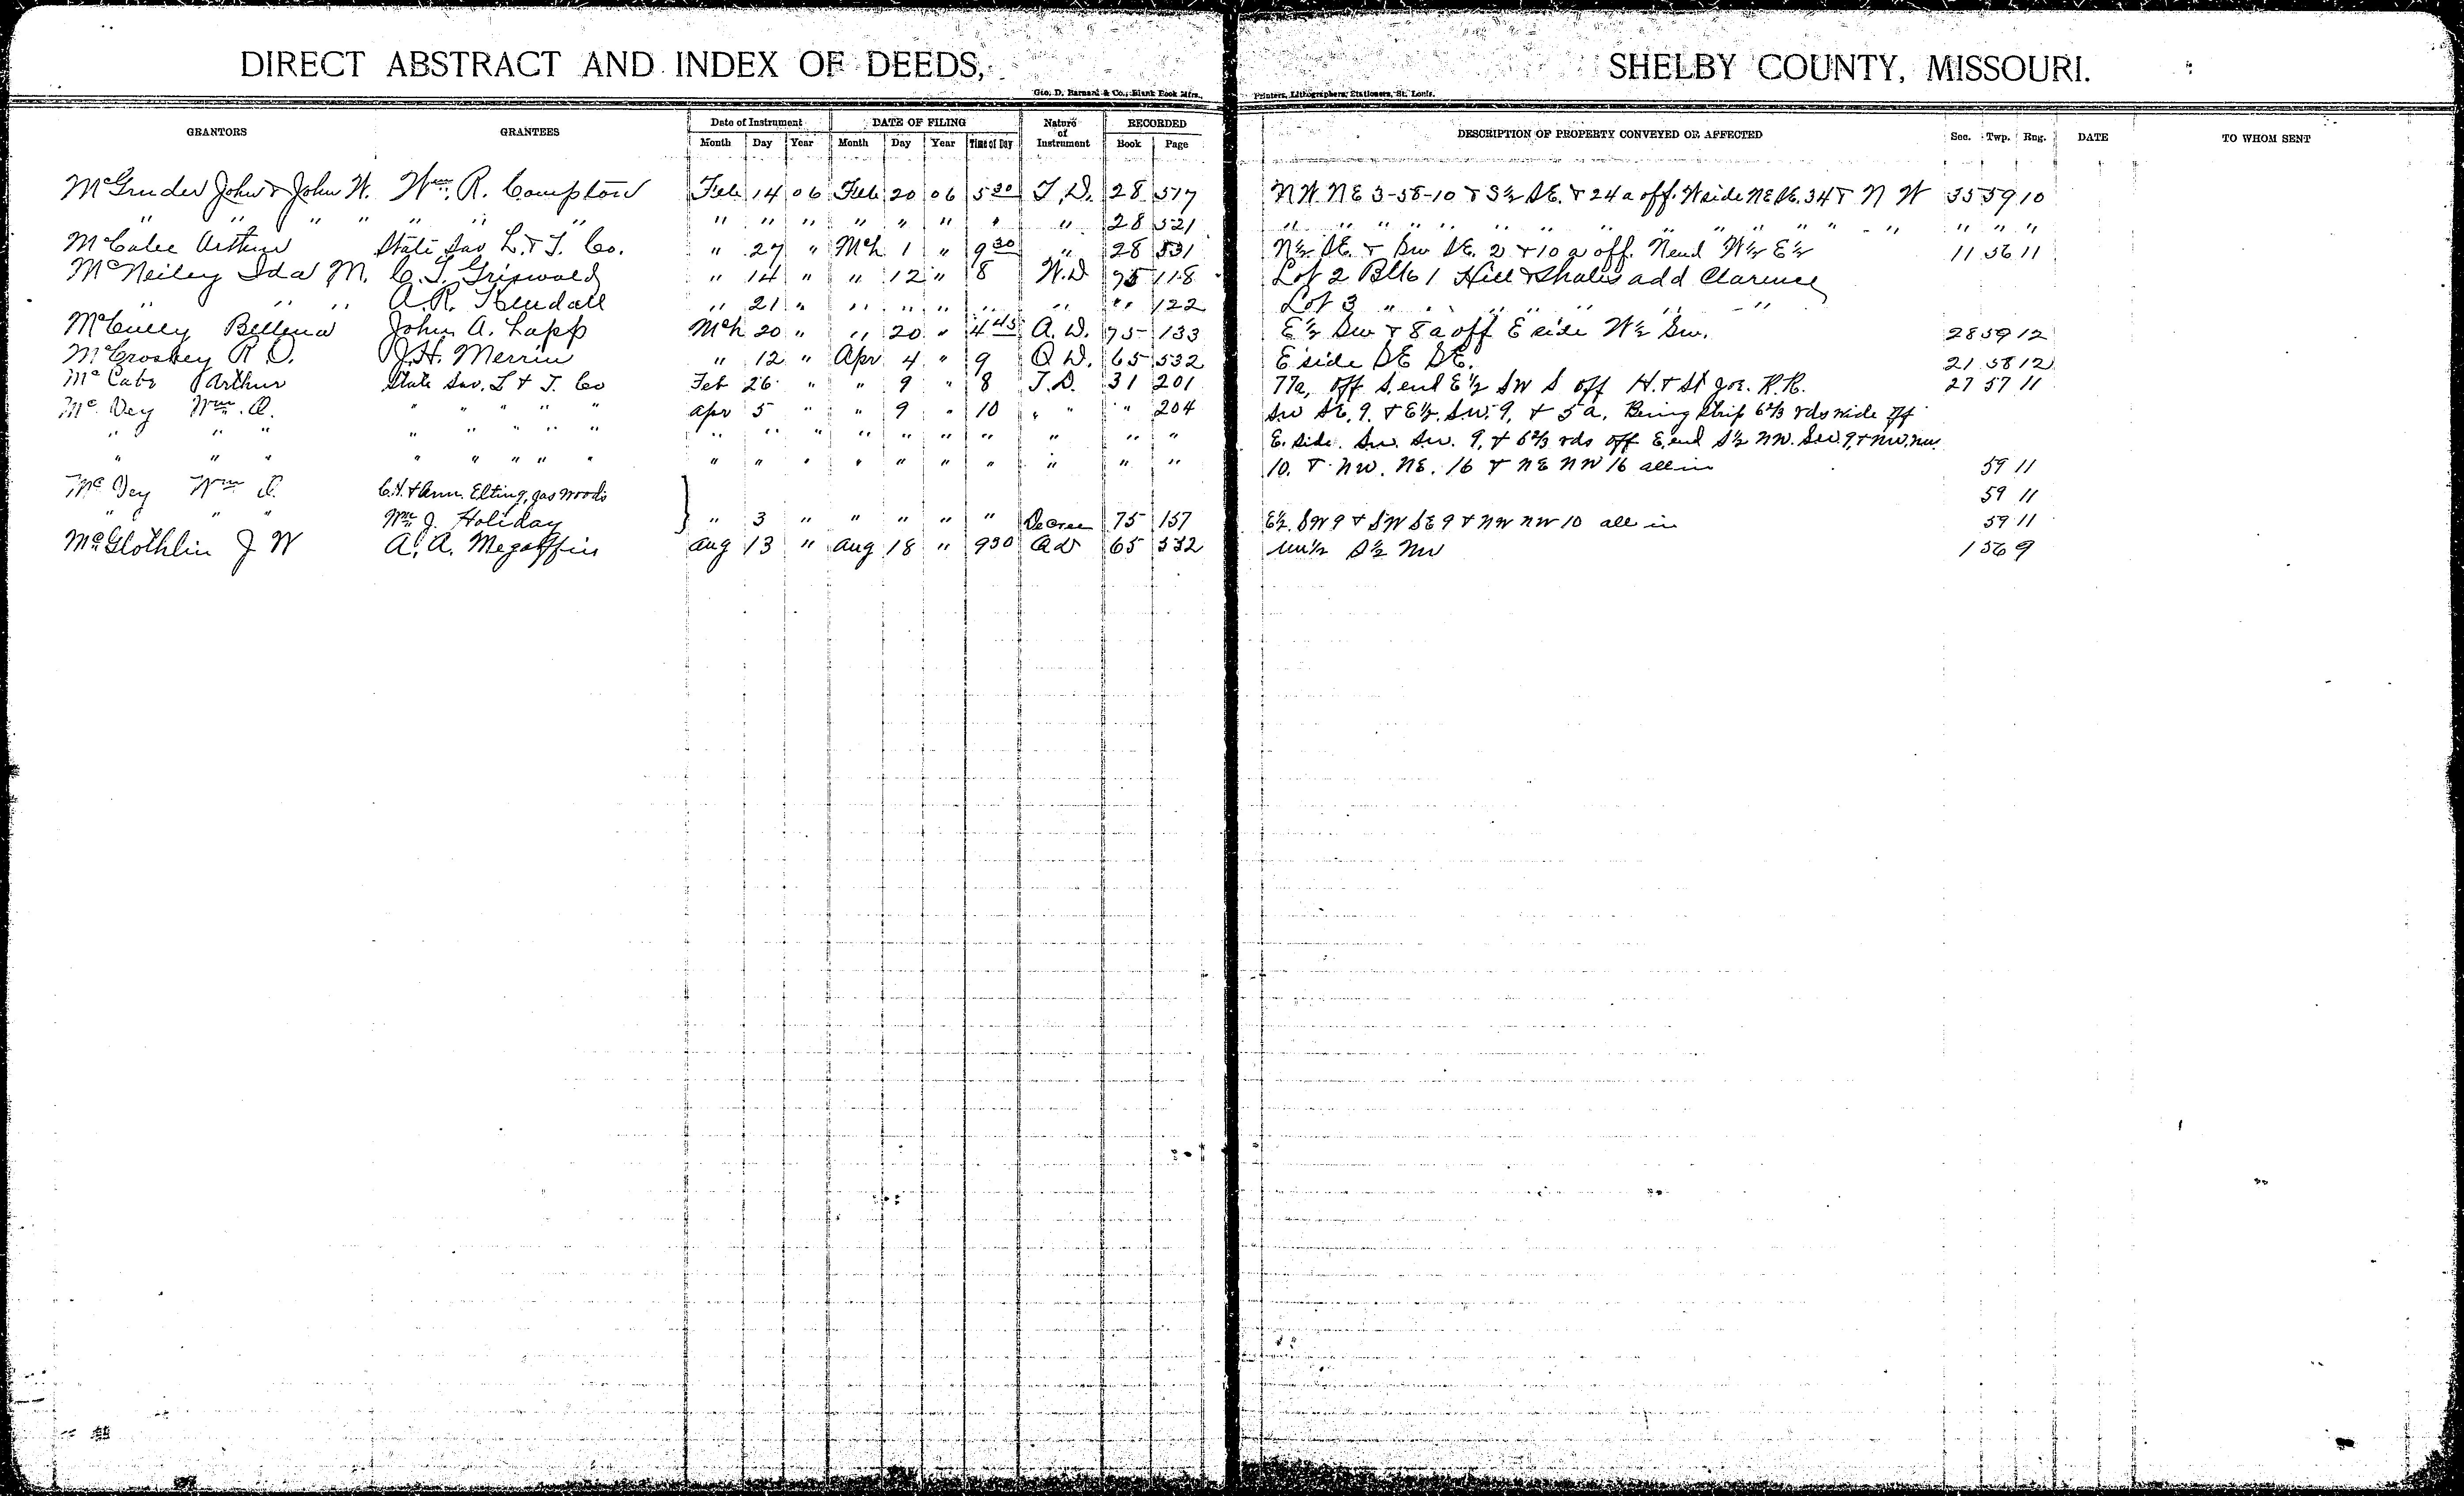 DIRECT ABSTRACT AND INDEX OF DEEDS, SHELBY COUNTY, MISSOURI.
Geo. D. Barnard & Co., Blank Book Mfrs., Printers, Lithographers, Stationers, St. Louis.
GRANTORS GRANTEES Date of Instrument DATE OF FILING Nature of Instrument RECORDED DESCRIPTION OF PROPERTY CONVEYED OR AFFECTED Sec. Twp. Rng. DATE TO WHOM SENT
Month Day Year Month Day Year Time of Day Book Page
McGruder John & John W. Wm. R. Compton Feb 14 06 Feb 20 06 5 30 T.D. 28 517 NW NE 3-58-10 & S½ SE. & 24 a off W side NE SE. 34 & N W 35 59 10
" " " " " " " " " " " " " " " " 28 521 " " " " " " " " " " " " " " " "
McCabe Arthur State Sav. L. & T. Co. " 27 " Mch 1 " 9 30 " 28 531 N½ SE. & Sw SE. 2 & 10 a off N end W½ E½ 11 56 11
McNeiley Ida M. C. T. Griswold " 14 " " 12 " 8 W.D 75 118 Lot 2 Blk 1 Hill & add Clarence
" " " A. R. Kendall " 21 " " " " " " " 122 Lot 3 " " " " " " "
McCully John A. Lapp Mch 20 " " 20 " 4 45 A. D. 75 133 E½ Sw & 8 a off E side W½ Sw. 28 59 12
McCroskey R D. J. H. Merrin " 12 " Apr 4 " 9 Q D. 65 532 E side SE SE. 21 58 12
McCabe Arthur State Sav. L & T. Co Feb 26 " " 9 " 8 T.D. 31 201 77a, off S. end E½ SW S off H. & St Joe. R.R. 27 57 11
McVey Wm. D. " " " " " Apr 5 " " 9 " 10 " " " 204 Sw SE. 9. & E½. Sw. 9, & 5 a. Being Strip 6⅔ rds wide off
" " " " " " " " " " " " " " " " " " E. side. Sw Sw. 9, & 6⅔ rds off E. end S½ NW. Sw. 9, & NW. NW
" " " " " " " " " " " " " " " " " " 10. & NW. NE. 16 & NE NW 16 all in 59 11
McVey Wm D. C. H. & Ann. Elting, Jas Woods 59 11
" " " Wm J. Holiday " 3 " " " " " Decree 75 157 E½. SW 9 & SW SE 9 & NW NW 10 all in 59 11
McGlothlin J W A. A. Megaffin Aug 13 " Aug 18 " 9 30 Q D 65 552 S½ NW 1 56 9